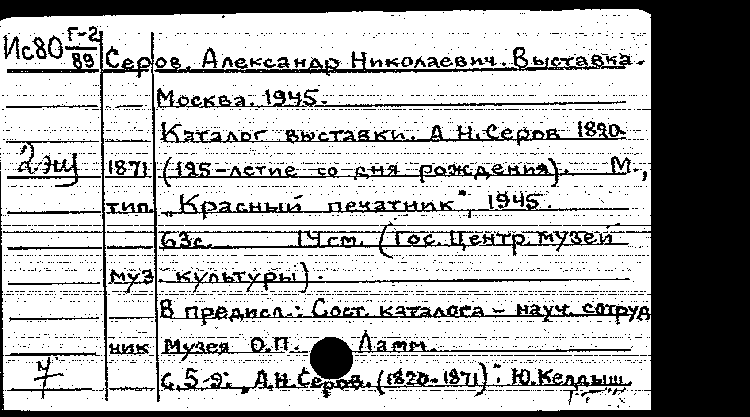 Ис80 Г-2/89 Серов. Александр Николаевич. Выставка.
Москва. 1945.
Каталог выставки. А.Н.Серов 1820-
2 экз 1871 (125-летие со дня рождения). М.,
тип. "Красный печатник", 1945.
63с. 14см. (Гос. Центр. музей
муз. культуры).
В предисл.: Сост. каталога – науч. сотруд
ник музея О.П. Ламм.
С.5-9: "А.Н.Серов. (1820-1871)": Ю.Келдыш.